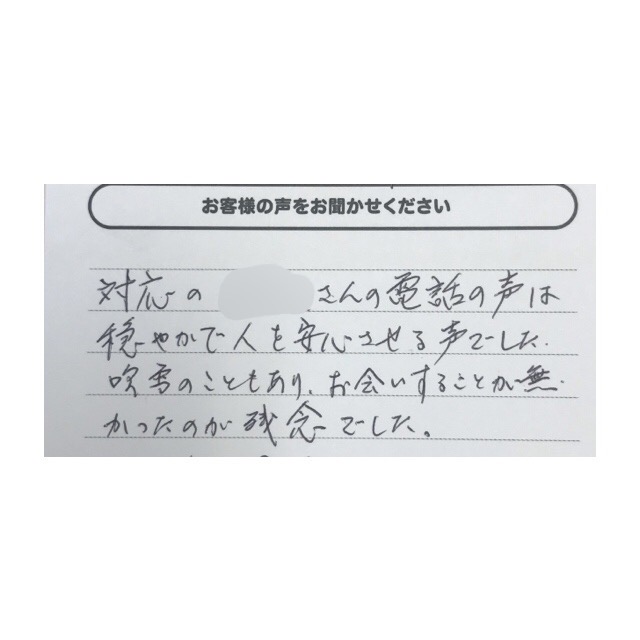 お客様の声をお聞かせください
対応の さんの電話の声は
穏やかで人を安心させる声でした.
吹雪のこともあり、お会いすることが無
かったのが残念でした。